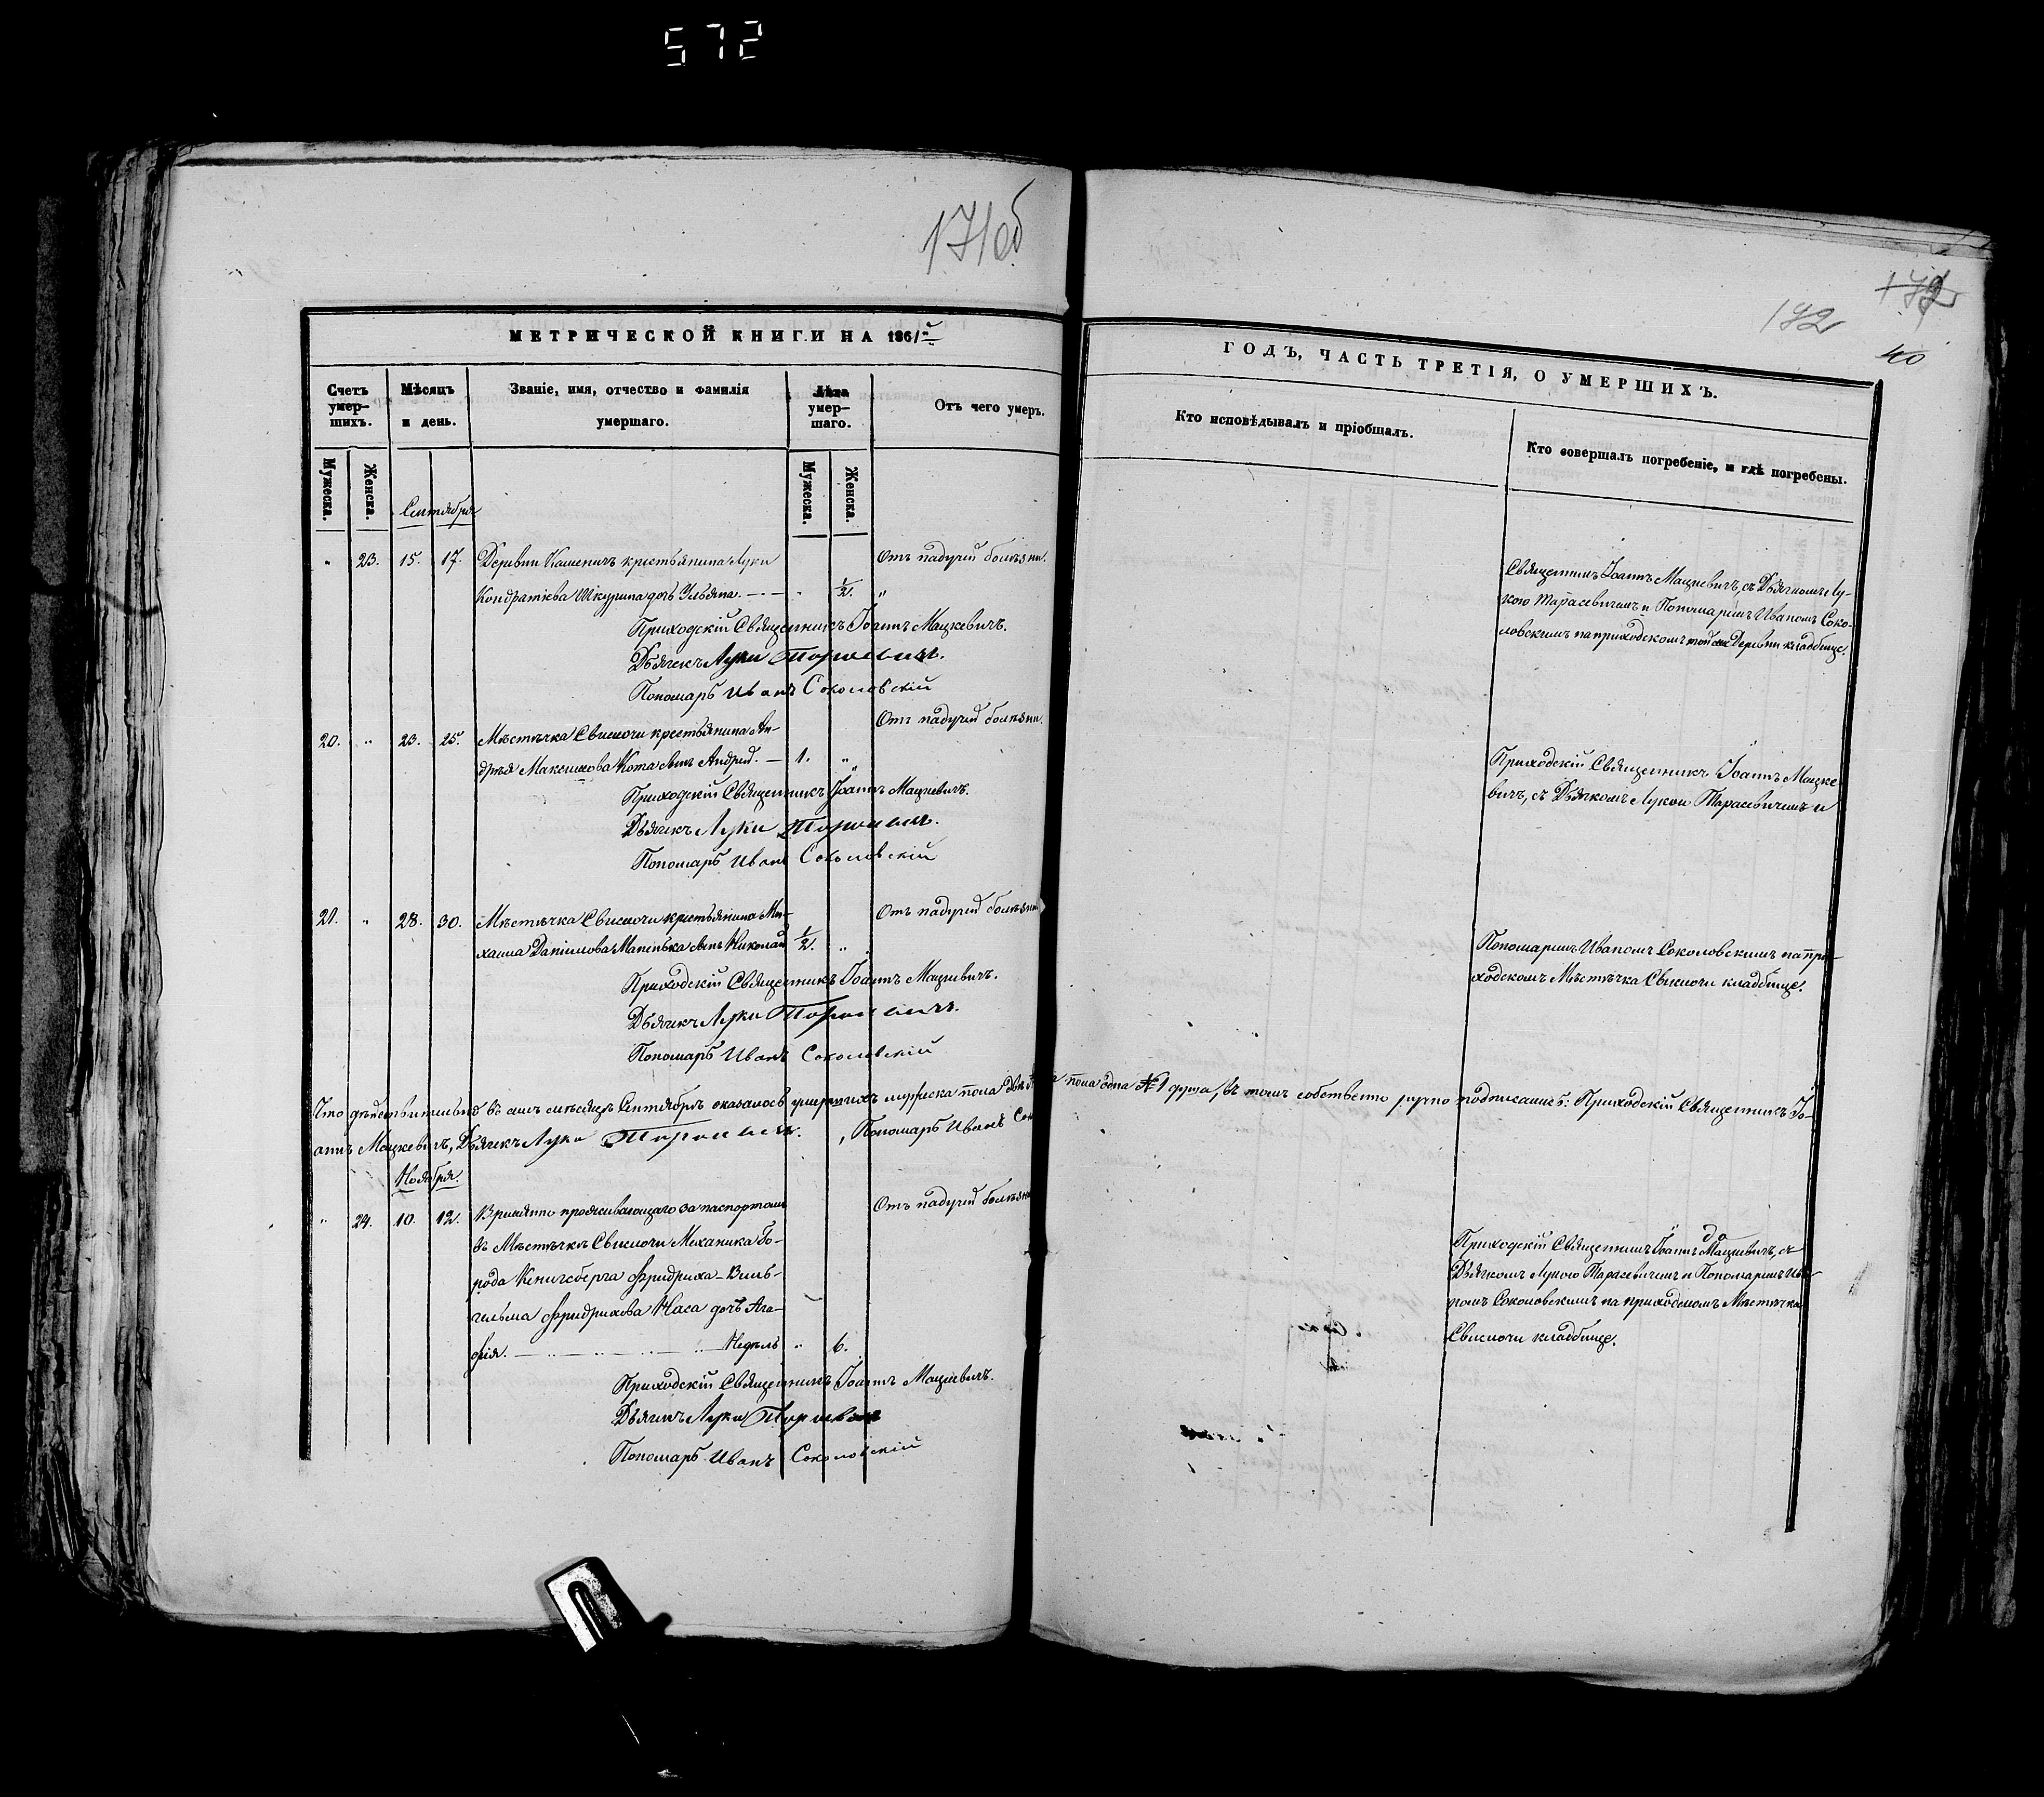 572
171об
172
172
40
МЕТРИЧЕСКОЙ КНИГИ НА 1861й
ГОДЪ, ЧАСТЬ ТРЕТІЯ, О УМЕРШИХЪ.
Счетъ умер-
шихъ.
Мѣсяцъ
и день.
Званіе, имя, отчество и фамилія
умершаго.
Лѣта
умер-
шаго.
Отъ чего умеръ.
Кто исповѣдывалъ и пріобщалъ.
Кто совершалъ погребеніе, и гдѣ погребены.
Мужеска.
Женска.
Мужеска.
Женска.
Сентября
" 23. 15. 17. Деревни крестьянина Луки
Отъ падучей болѣзни.
Кондратіева Шкурина дочь Ульяна. " ½. "
Приходскій Священникъ Іоаннъ Мацкевичъ.
Дьячекъ Лука Тарасевичъ.
Пономарь Иванъ Соколовскій
Священникъ Іоаннъ Мацкевичъ, съ Дьячкомъ Лу-
кою Тарасевичемъ и Пономаремъ Иваномъ Соко-
ловскимъ на приходскомъ той же Деревни кладбище.
20. " 23. 25. Мѣстечка Свислочи крестьянина Ан-
Отъ падучей болѣзни.
дрея Максимова Кота сынъ Андрей. — 1. "
Приходскій Священникъ Іоаннъ Мацкевичъ.
Дьячекъ Лука Тарасевичъ.
Пономарь Иванъ Соколовскій
Приходскій Священникъ Іоаннъ Мацке-
вичъ, съ Дьячкомъ Лукою Тарасевичемъ и
21. " 28. 30. Мѣстечка Свислочи крестьянина Ми-
Отъ падучей болѣзни
хаила Даніилова сынъ Николай ½. "
Приходскій Священникъ Іоаннъ Мацкевичъ.
Дьячекъ Лука Тарасевичъ.
Пономарь Иванъ Соколовскій
Пономаремъ Иваномъ Соколовскимъ на при-
ходскомъ Мѣстечка Свислочи кладбище.
Что дѣйствительно въ семъ мѣсяцѣ Сентябрѣ оказалось умершихъ мужеска пола двѣ пола одна № 1 душа, въ томъ собственно ручно подписались: Приходскій Священникъ Іо-
аннъ Мацкевичъ, Дьячекъ Лука Тарасевичъ. , Пономарь Иванъ Сок
Ноября.
" 24. 10. 12. Временно проживающаго за паспортомъ
Отъ падучей болѣзни
въ Мѣстечкѣ Свислочи Механика го-
рода Кенигсберга Фридриха-Виль-
гельма Фридрихова дочь Ага-
фія. — Недѣль " 6.
Приходскій Священникъ Іоаннъ Мацкевичъ.
Дьячекъ Лука Тарасевичъ
Пономарь Иванъ Соколовскій
Приходскій Священникъ Іоаннъ Мацкевичъ, съ
Дьячкомъ Лукою Тарасевичемъ и Пономаремъ Ива-
номъ Соколовскимъ на приходскомъ Мѣстечка
Свислочи кладбище.